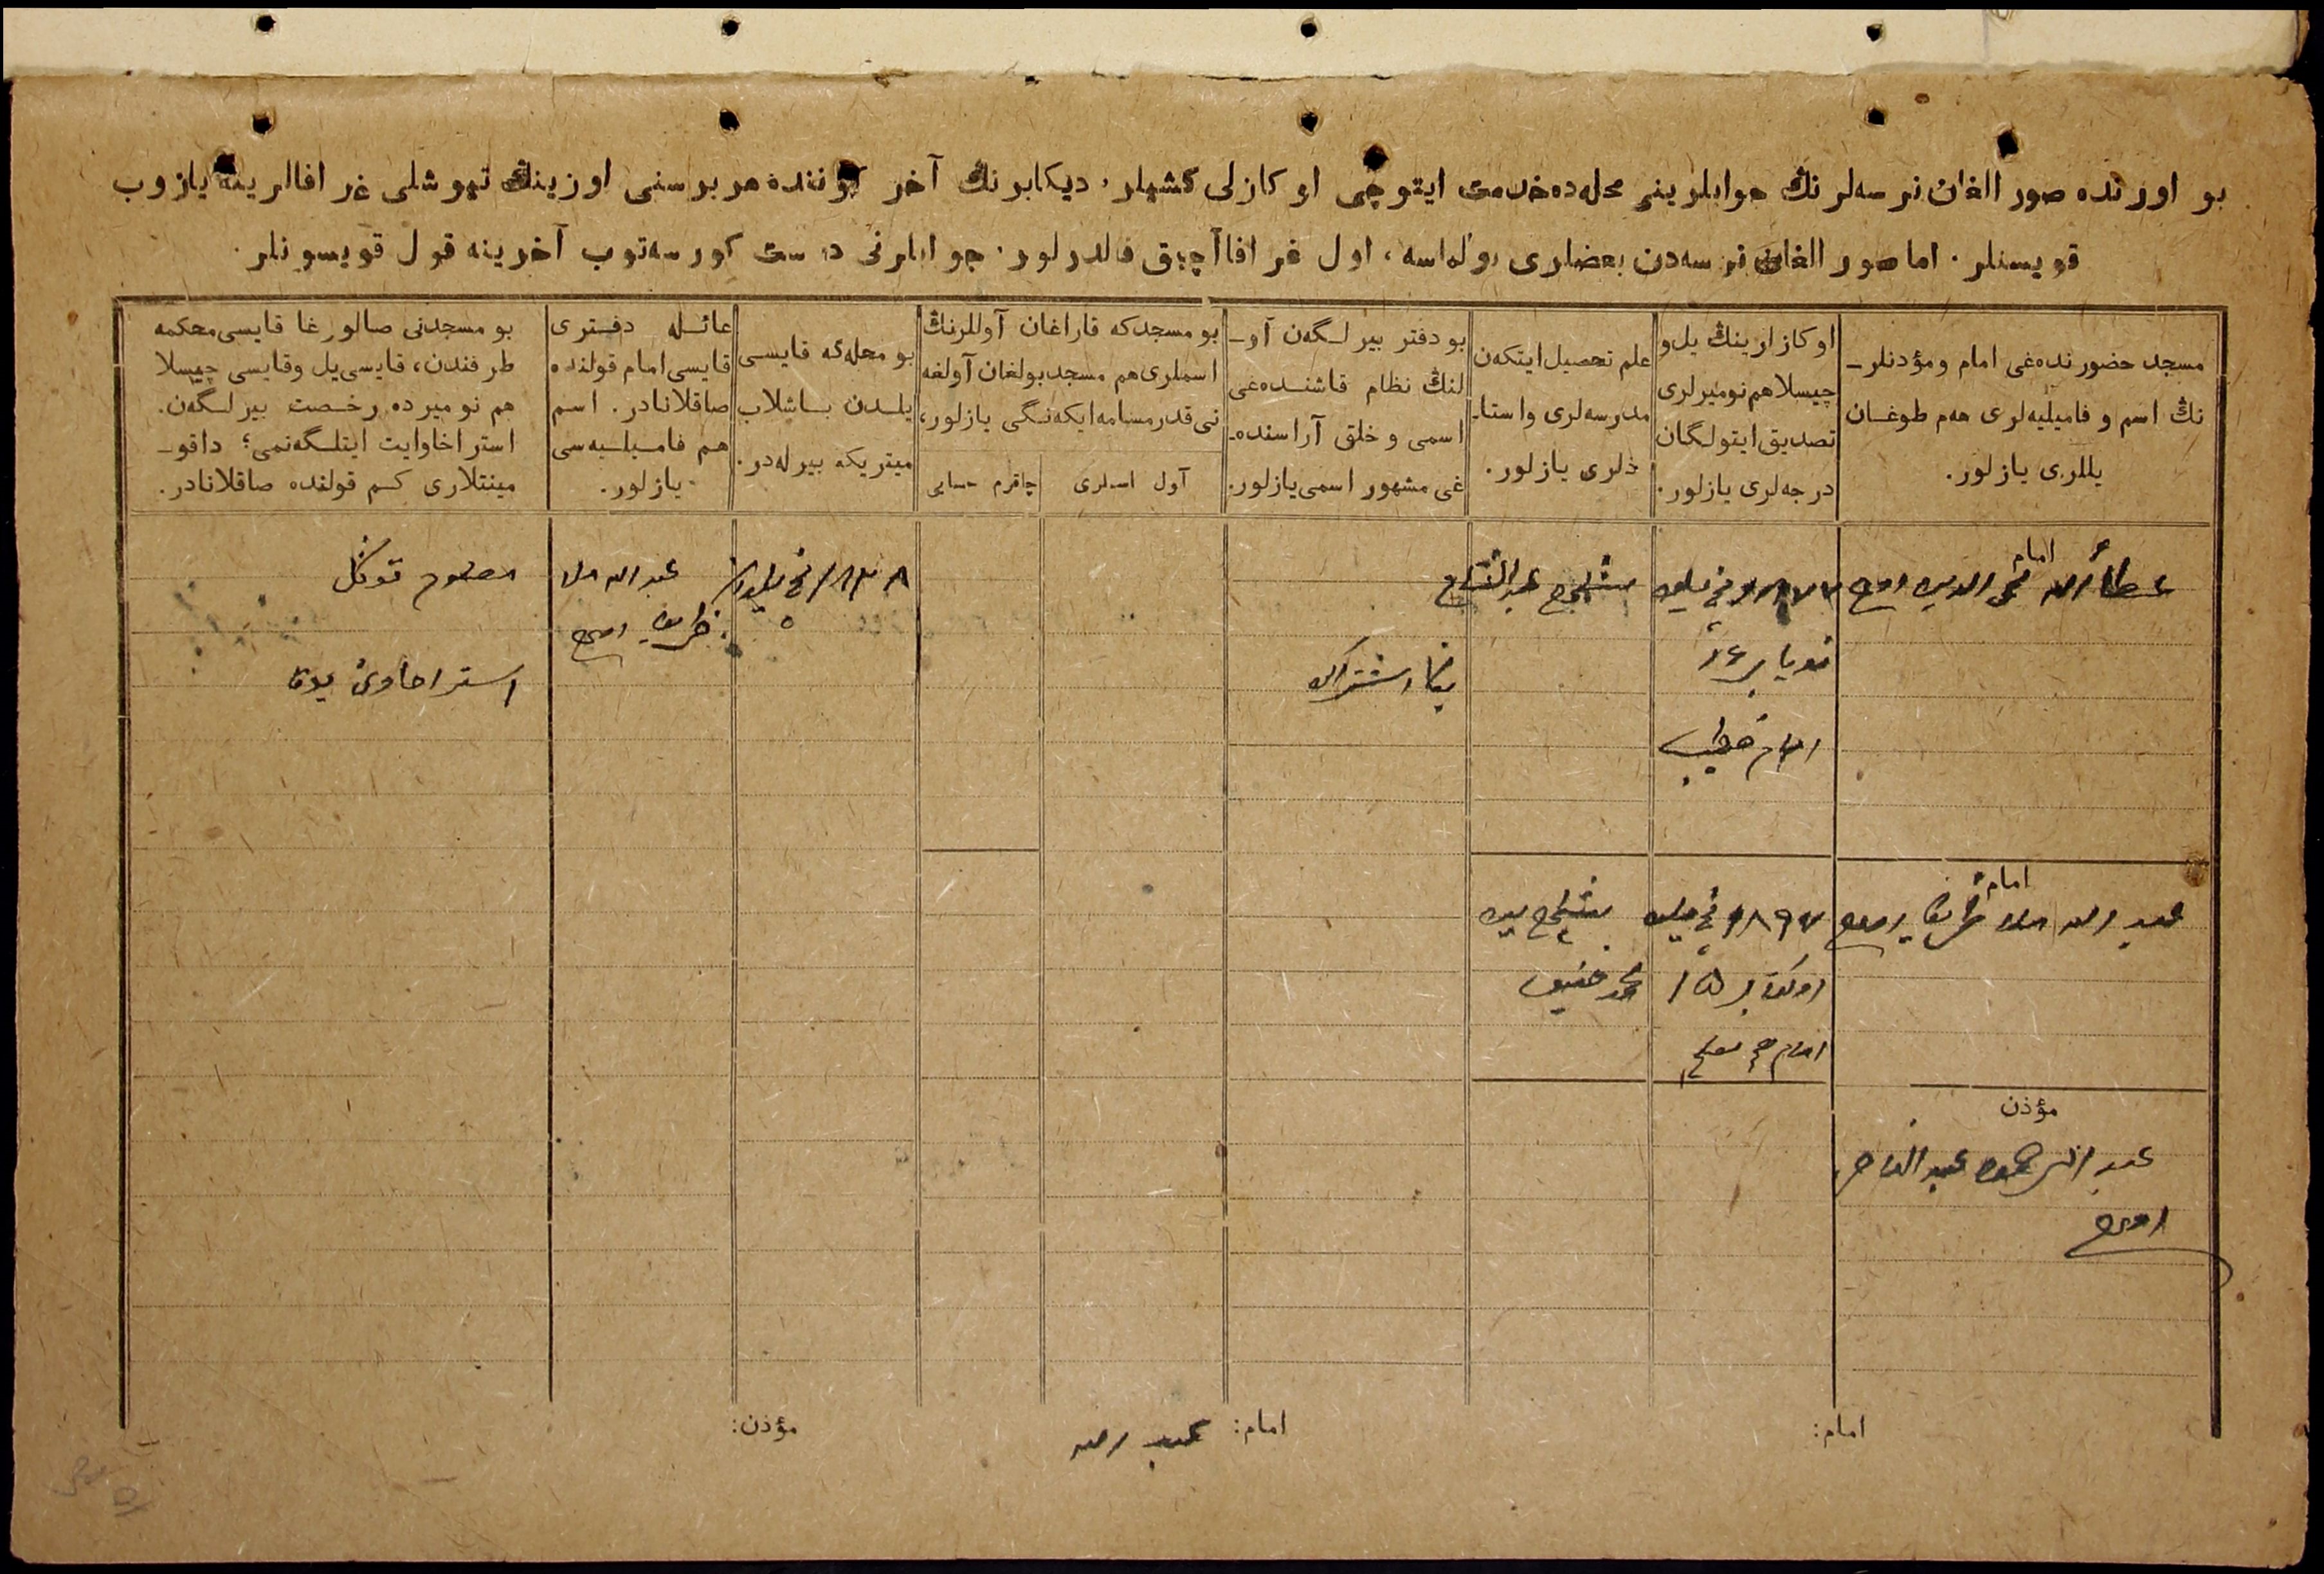 بو اورنده صورالغان نرسه‌لرنڭ جوابلرینی محله‌ده خدمت ایتوچی اوکازلی کشیلر، دیکابرنڭ آخر کوننده هر برسنی اوزینڭ تیوشلی غرافالرینه یازوب
قویسنلر. اما صورالغان نرسه‌دن بعضلری بولماسه، اول غرافا آچیق قالدرلور. جوابلرنی درست کورسه‌توب آخرینه قول قویسونلر.
مسجد حضورنده‌غی امام ومؤذنلر-
نڭ اسم و فامیلیه‌لری هم طوغان
یللری یازلور.
اوکازلرینڭ یل و
چیسلا هم نومیرلری
تصدیق ایتولگان
درجه‌لری یازلور.
علم تحصیل ایتکه‌ن
مدرسه‌لری واستا-
ذلری یازلور.
بو دفتر بیرلگه‌ن آو-
لنڭ نظام قاشنده‌غی
اسمی و خلق آراسنده-
غی مشهور اسمی یازلور.
بو مسجدکه قاراغان آوللرنڭ
اسملری هم مسجد بولغان آولغه
نی قدر مسافه ایکه‌نلگی یازلور،
آول اسملری
چاقرم حسابی
بو محله‌گه قایسی
یلدن باشلاب
میتریکه بیرله‌در.
عائله دفتری
قایسی امام قولنده
صاقلانادر. اسم
هم فامیلیه‌سی
یازلور.
بو مسجدنی صالورغا قایسی محکمه
طرفندن، قایسی یل وقایسی چیسلا
هم نومیرده رخصت بیرلگه‌ن.
استراخاوایت ایتلگه‌نمی؟ داقو-
مینتلاری کم قولنده صاقلانادر.
امام
عطاءالله محی الدین اوف
١٨٧٧ نچی یلده
نویابر ١٤
امام خطیب
عبدالفتاح
اشتراک
عبدالله ملا
معلوم توگل
یوق
امام
عبدالله ملا
١٨٩٧ نچی یلده
اوکتابر ١٥
امام هم معلم
محمد حنیف
مؤذن
عبدالرحمن عبدالناصر
اوف
امام:
امام: عبدالله
مؤذن: